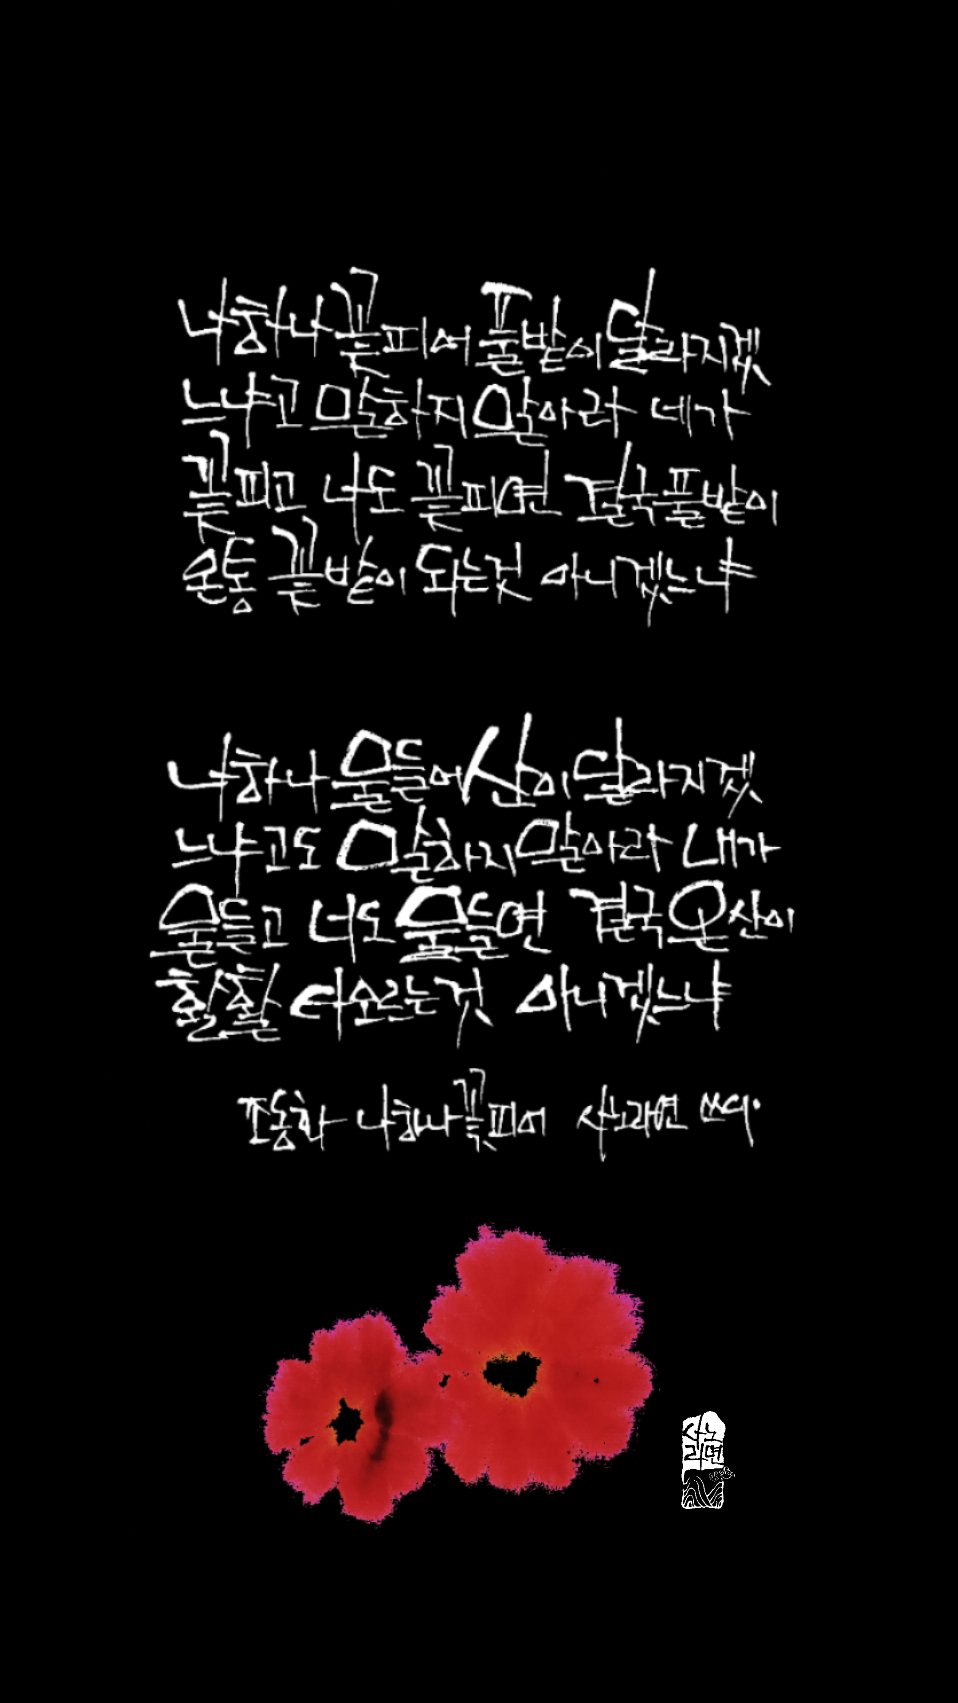 나 하나 꽃피어 풀밭이 달라지겠
느냐고 말하지 말아라 네가
꽃피고 너도 꽃피면 결국 풀밭이
온통 꽃밭이 되는것 아니겠느냐
나 하나 물들어 산이 달라지겠
느냐고도 말하지 말아라 내가
물들고 너도 물들면 결국 온산이
활활 타오르는 것 아니겠느냐
조동화 나 하나 꽃피어 사노라면 쓰다.
사노
라면